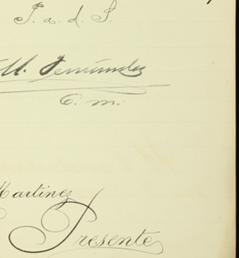 P. a. d. P
M. Fernandez
C. M.
Martinez
Presente